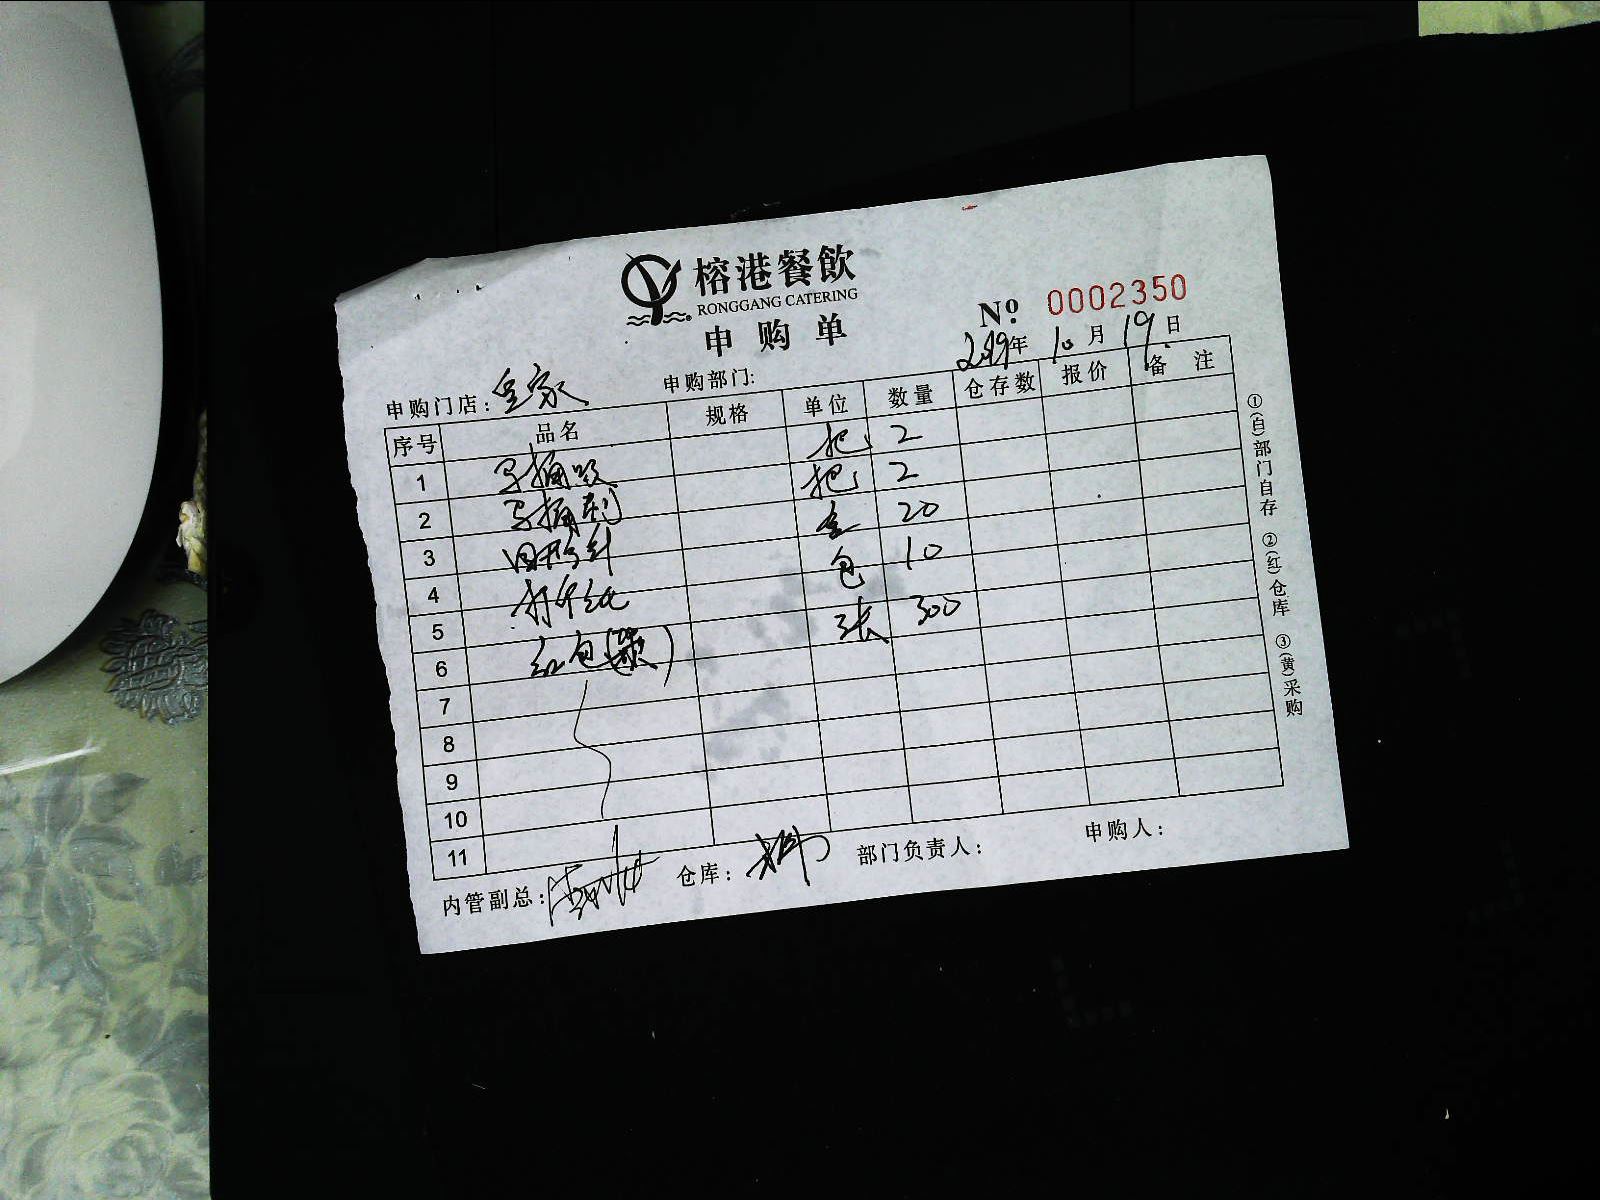 榕港餐飲
RONGGANG CATERING
申购单
№ 0002350
2019年10月19日
申购门店：皇家 申购部门：
序号 品名 规格 单位 数量 仓存数 报价 备注
1 马桶吸 把 2
2 马桶刷 把 2
3 回形针 盒 20
4 打印纸 包 10
5 红包(袋) 张 300
6
7
8
9
10
11
内管副总： 仓库： 部门负责人： 申购人：
①(白)部门自存 ②(红)仓库 ③(黄)采购